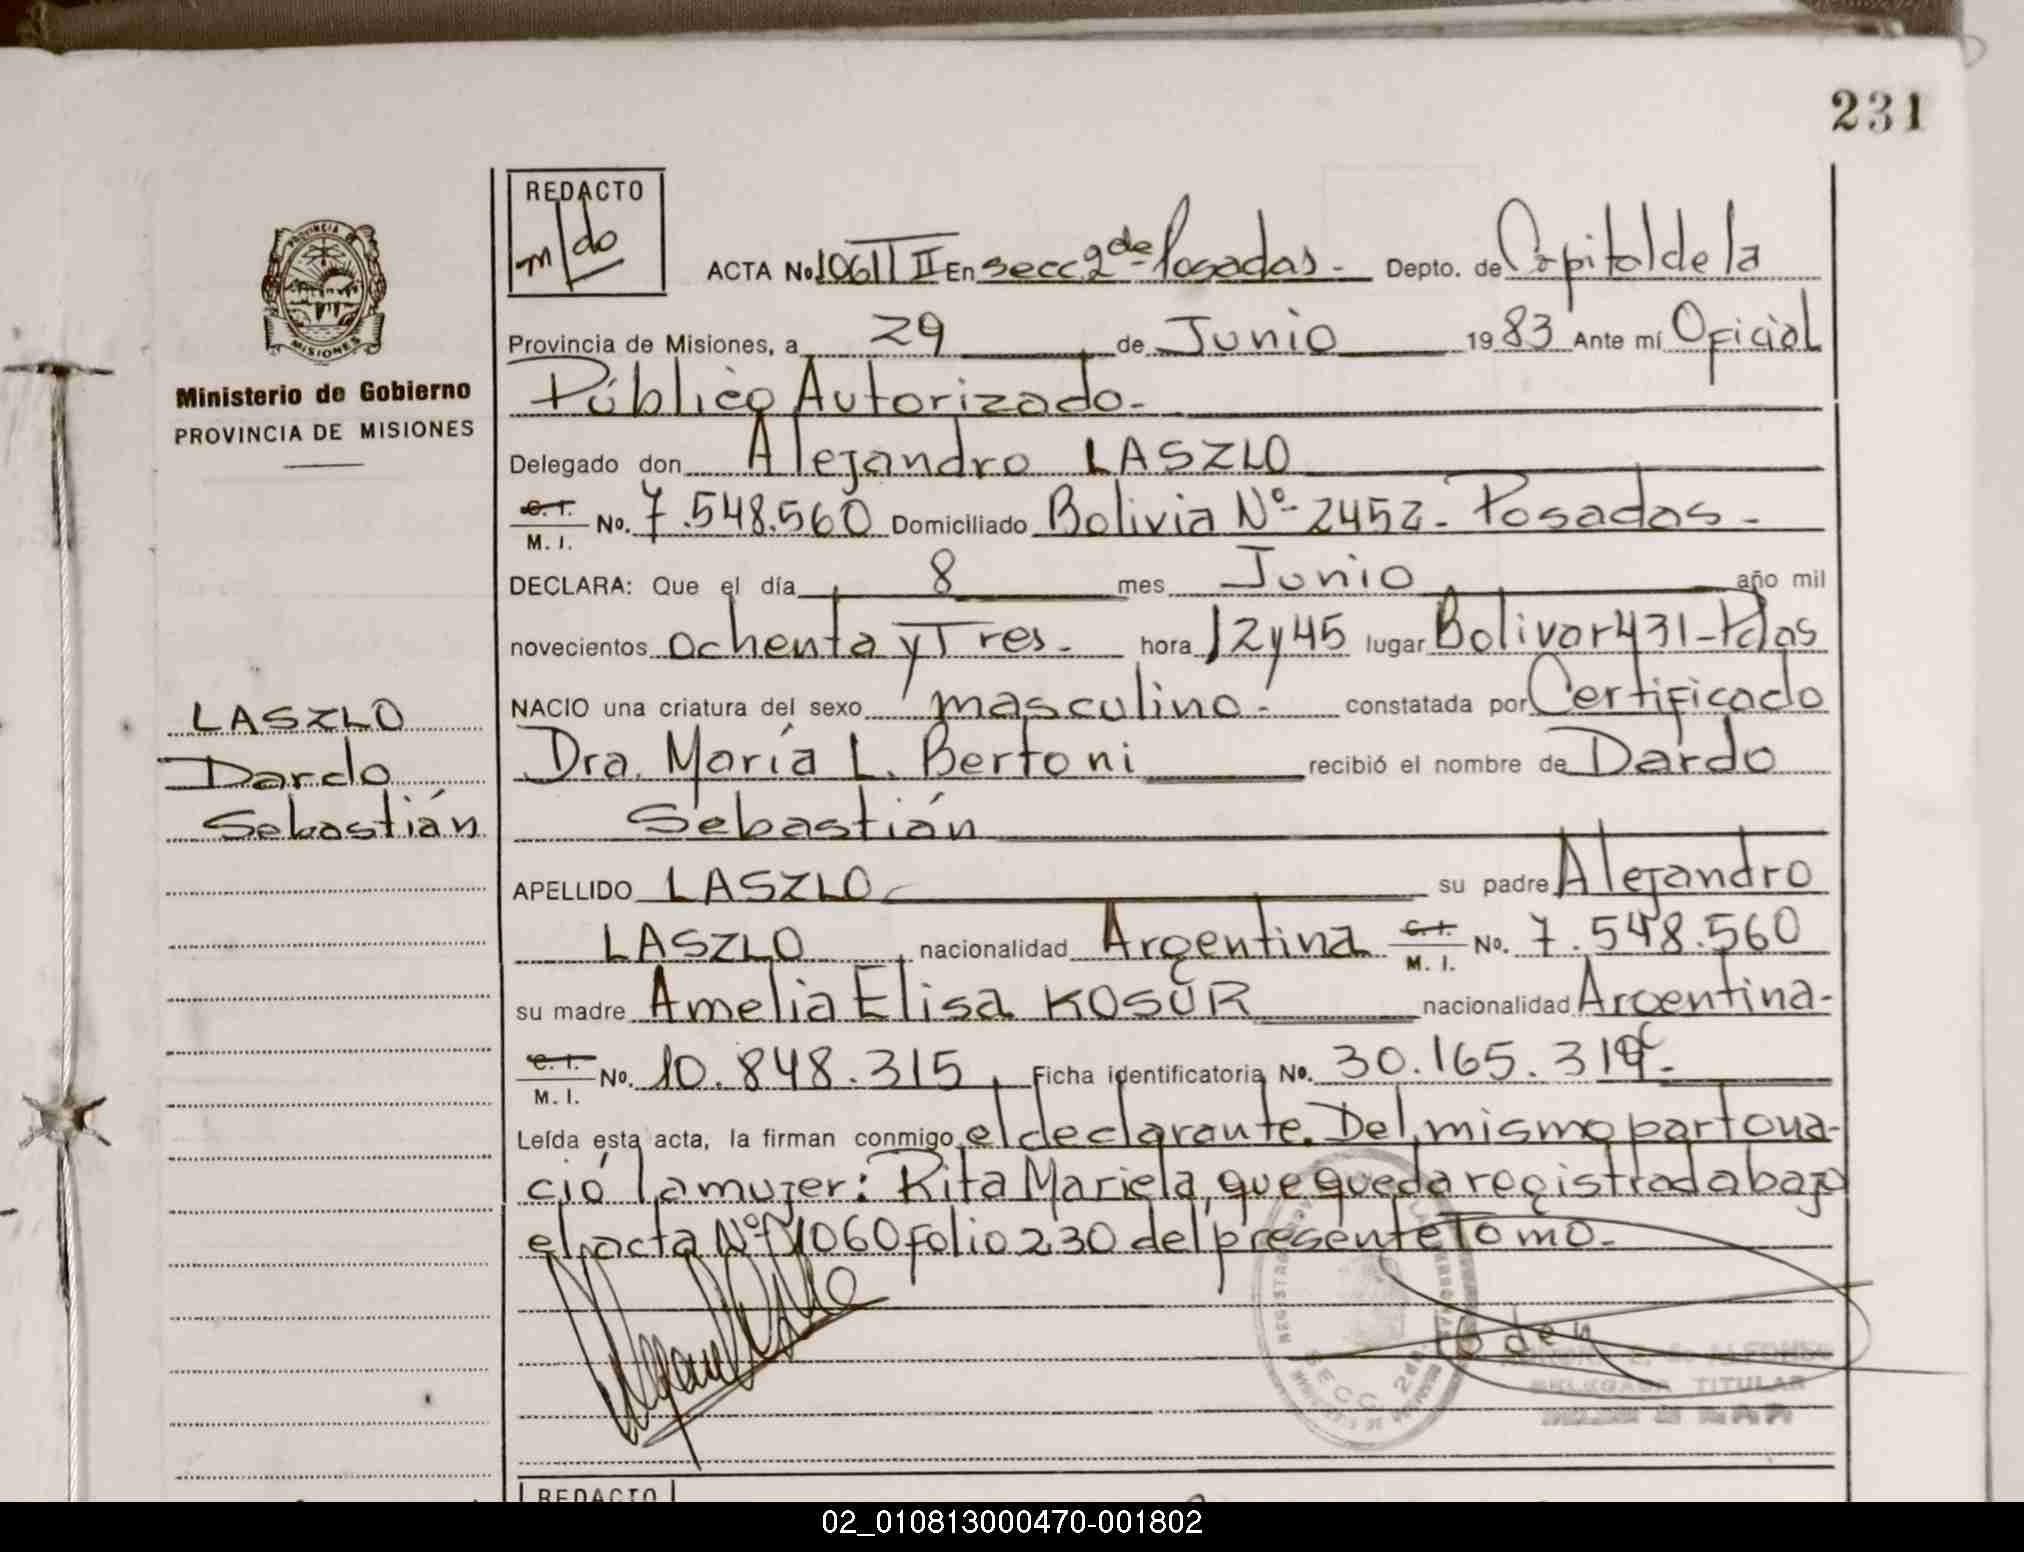 231
REDACTO
m/do
ACTA No 1061 T II En secc 2de Posadas - Depto. de Capital de la
Provincia de Misiones, a 29 de Junio 1983 Ante mí Oficial
Público Autorizado -
Delegado don Alejandro LASZLO
C. I. / M. I. No. 7.548.560 Domiciliado Bolivia Nº 2452 - Posadas -
DECLARA: Que el día 8 mes Junio año mil
novecientos ochenta y Tres - hora 12 y 45 lugar Bolivar 431 - Pdas
NACIO una criatura del sexo masculino - constatada por Certificado
Dra. María L. Bertoni recibió el nombre de Dardo
Sebastián
APELLIDO LASZLO su padre Alejandro
LASZLO nacionalidad Argentina C. I. / M. I. No. 7.548.560
su madre Amelia Elisa KOSUR nacionalidad Argentina -
C. I. / M. I. No. 10.848.315 Ficha identificatoria No. 30.165.319
Leída esta acta, la firman conmigo el declarante. Del mismo parto na-
ció la mujer: Rita Mariela, que queda registrada bajo
el acta Nº 1060 folio 230 del presente Tomo -
PROVINCIA DE
MISIONES
Ministerio de Gobierno
PROVINCIA DE MISIONES
LASZLO
Dardo
Sebastián
SECC. 2da
DELEGADA TITULAR
REDACTO
02_010813000470-001802